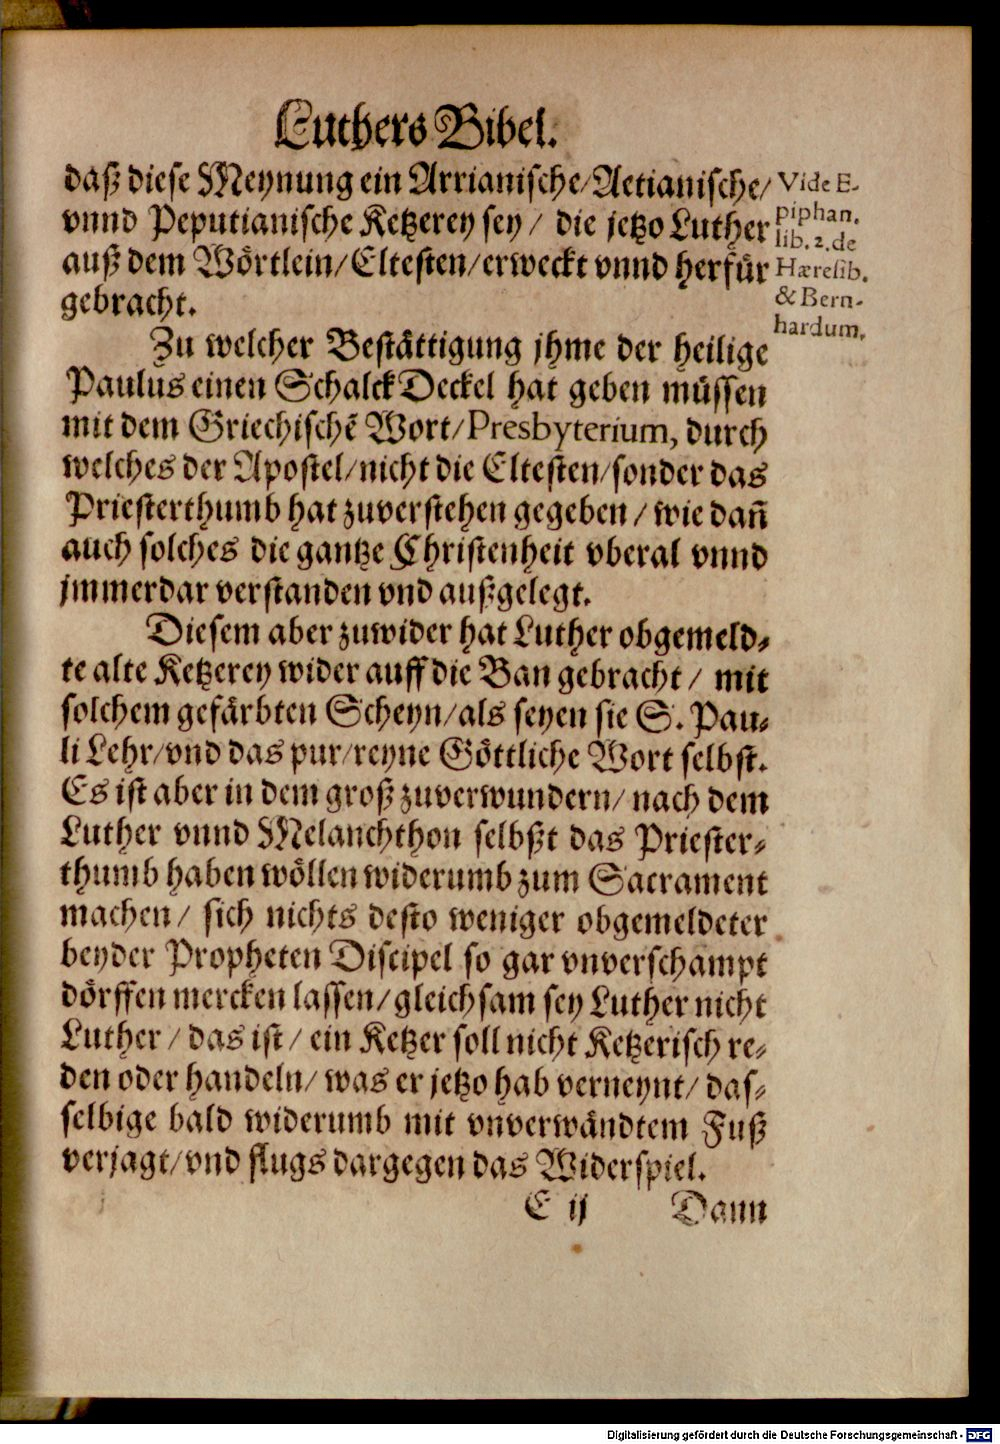 Luthers Bibel.
daß diese Meynung ein Arrianische/Aetianische/
vnnd Peputianische Ketzerey sey/ die jetzo Luther
auß dem Wörtlein/Eltesten/erweckt vnnd herfür
gebracht.
Vide E-
piphan.
lib. 2. de
Hæresib.
& Bern-
hardum.
Zu welcher Bestättigung jhme der heilige
Paulus einen SchalckDeckel hat geben müssen
mit dem Griechischẽ Wort/Presbyterium, durch
welches der Apostel/nicht die Eltesten/sonder das
Priesterthumb hat zuverstehen gegeben/ wie dañ
auch solches die gantze Christenheit vberal vnnd
jmmerdar verstanden vnd außgelegt.
Diesem aber zuwider hat Luther obgemeld-
te alte Ketzerey wider auff die Ban gebracht/ mit
solchem gefärbten Scheyn/als seyen sie S. Pau-
li Lehr/vnd das pur/reyne Göttliche Wort selbst.
Es ist aber in dem groß zuverwundern/ nach dem
Luther vnnd Melanchthon selbßt das Priester-
thumb haben wöllen widerumb zum Sacrament
machen/ sich nichts desto weniger obgemeldeter
beyder Propheten Discipel so gar vnverschampt
dörffen mercken lassen/gleichsam sey Luther nicht
Luther/ das ist/ ein Ketzer soll nicht Ketzerisch re-
den oder handeln/ was er jetzo hab verneynt/ das-
selbige bald widerumb mit vnverwändtem Fuß
verjagt/vnd flugs dargegen das Widerspiel.
E ij Dann
Digitalisierung gefördert durch die Deutsche Forschungsgemeinschaft - DFG